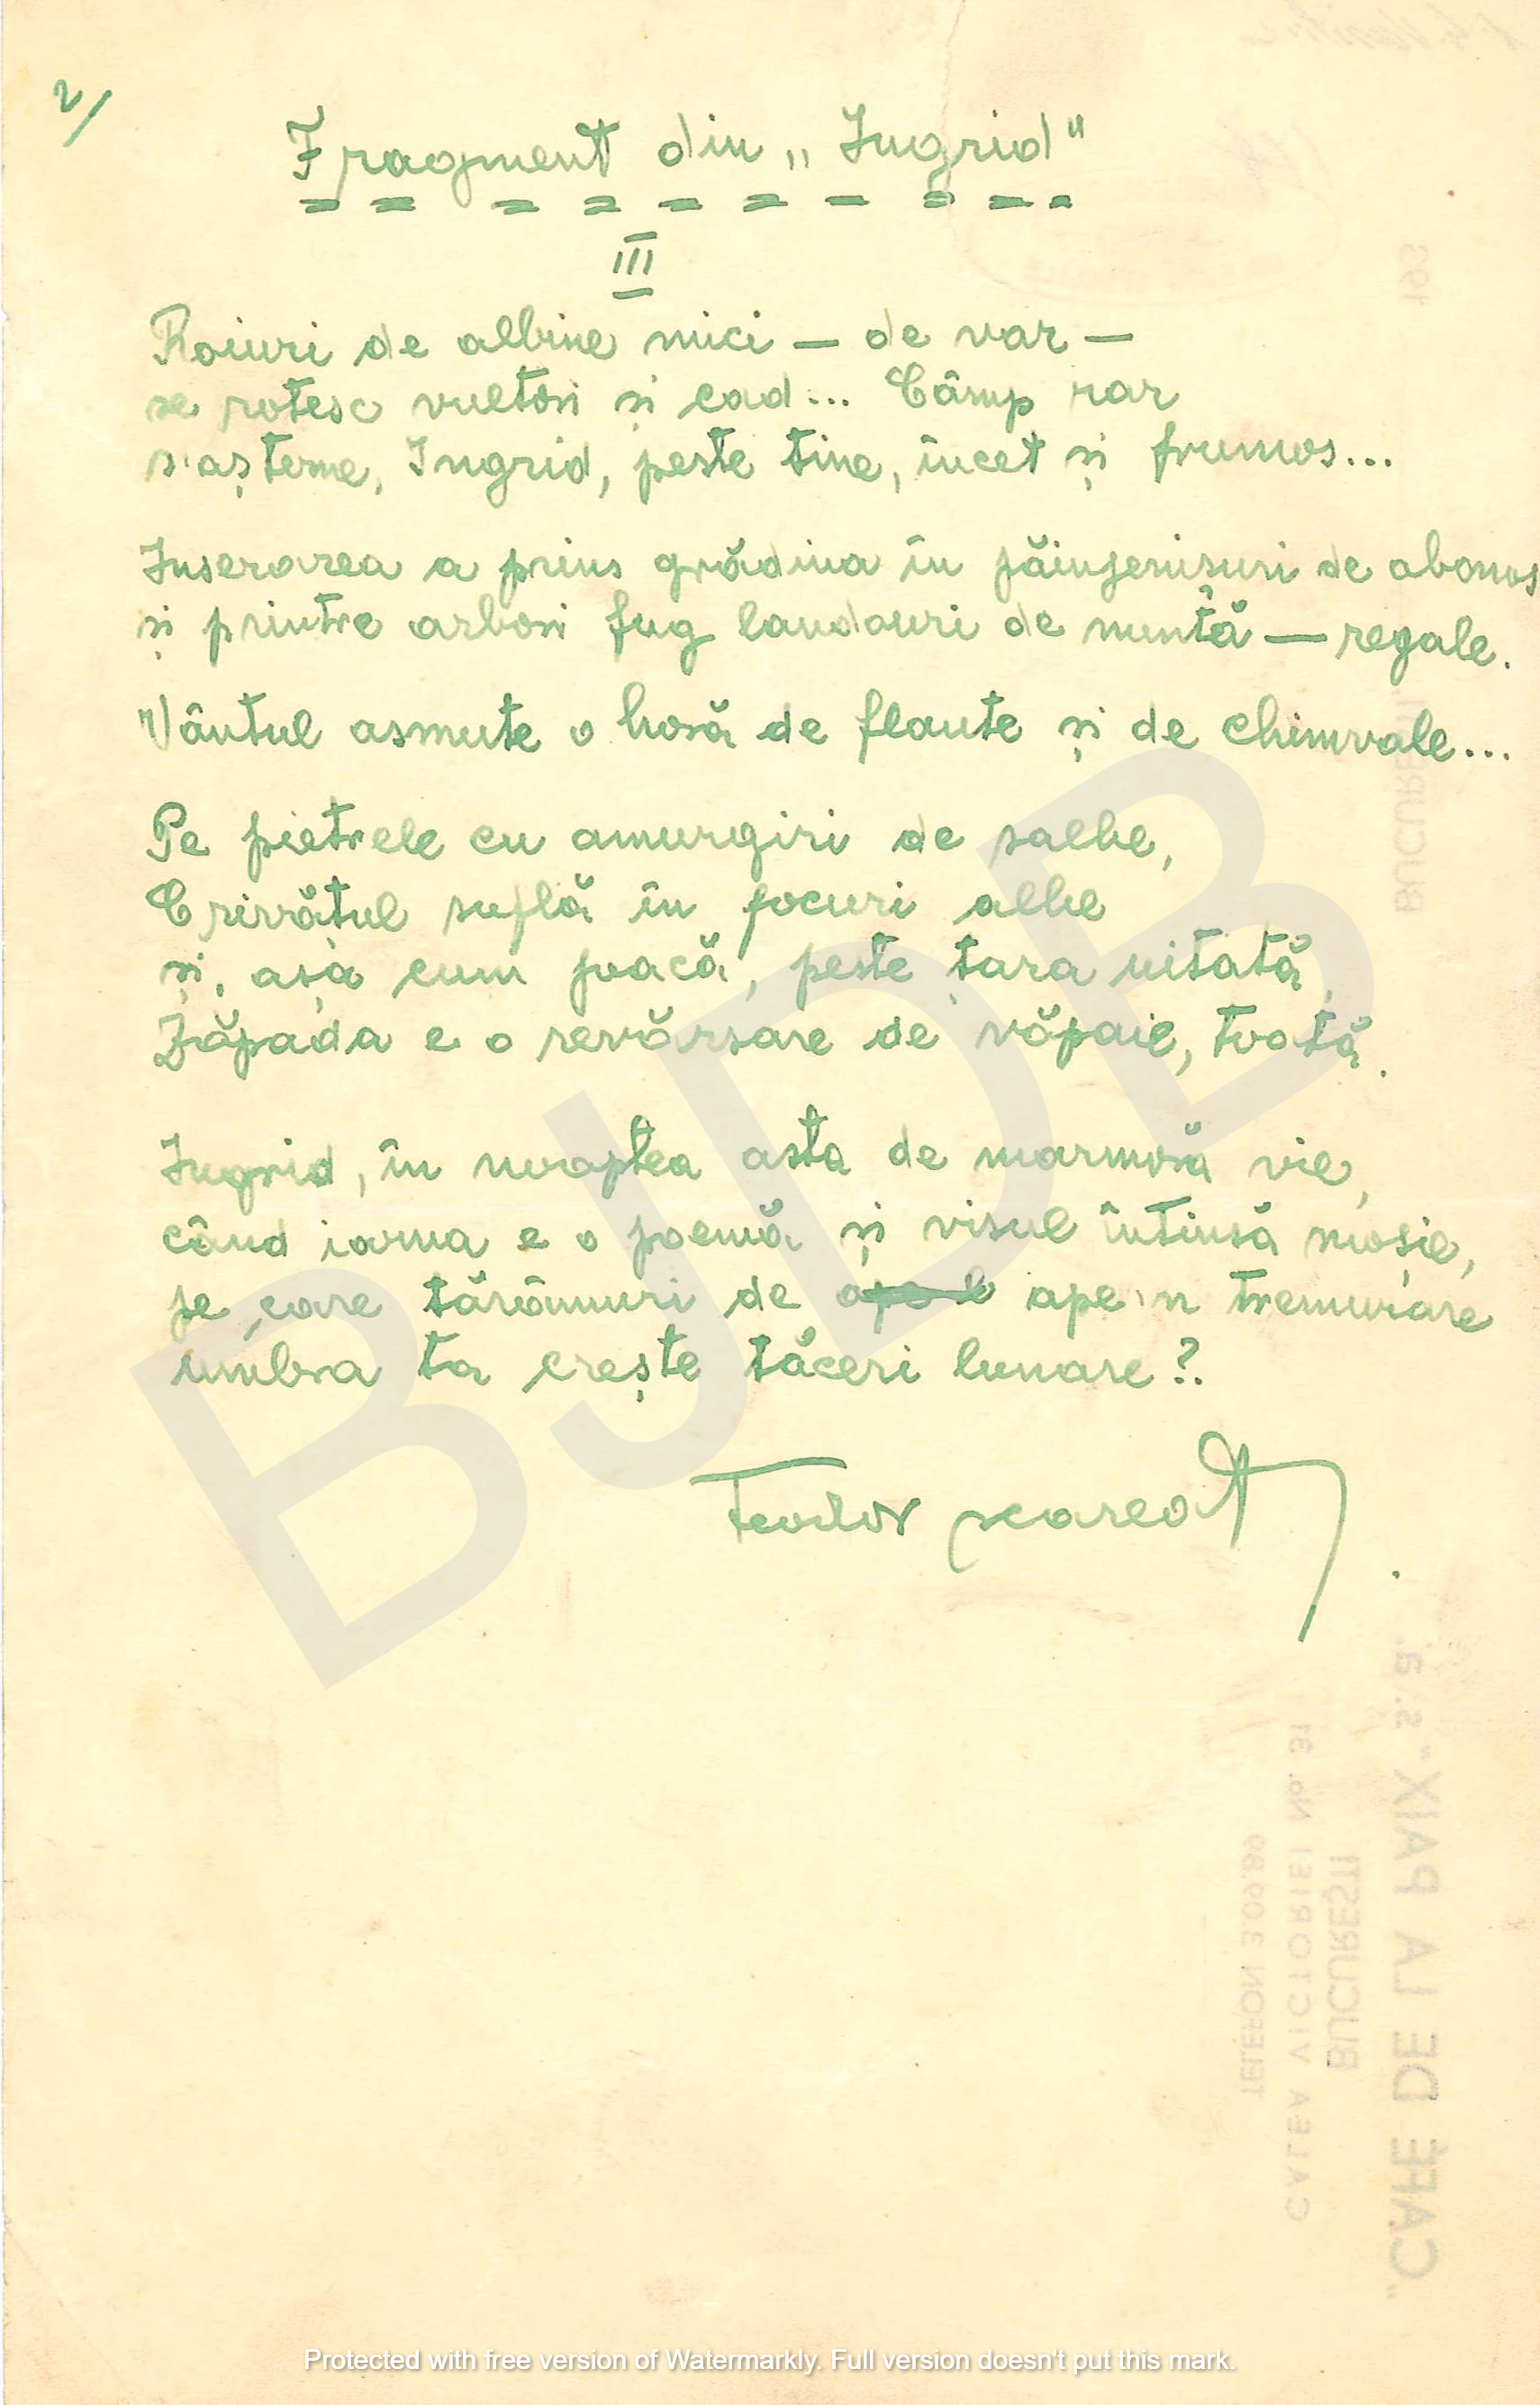 2/
Fragment din „Ingrid"
III
Roiuri de albine mici — de var —
se rotesc vultori și cad... Câmp rar
s'așterne, Ingrid, peste tine, încet și frumos...
Inserarea a prins grădina în păinjenișuri de abanos
și printre arbori fug landouri de nuntă — regale.
Vântul asmute o horă de flaute și de chimvale...
Pe pietrele cu amurgiri de salbe,
Crivățul suflă în focuri albe
și, așa cum joacă, peste țara uitată,
Zăpada e o revărsare de văpaie, toată.
Ingrid, în noaptea asta de marmoră vie,
când iarna e o poemă și visul întinsă moșie,
pe care tărâmuri de ape'n tremurare
umbra ta crește tăceri lunare?
Teodor Scarlat
193
BUCUREȘTI,
„CAFÉ DE LA PAIX" S. A.
BUCUREȘTI
CALEA VICTORIEI No. 31
TELEFON 3.09.89
BJDB
Protected with free version of Watermarkly. Full version doesn't put this mark.